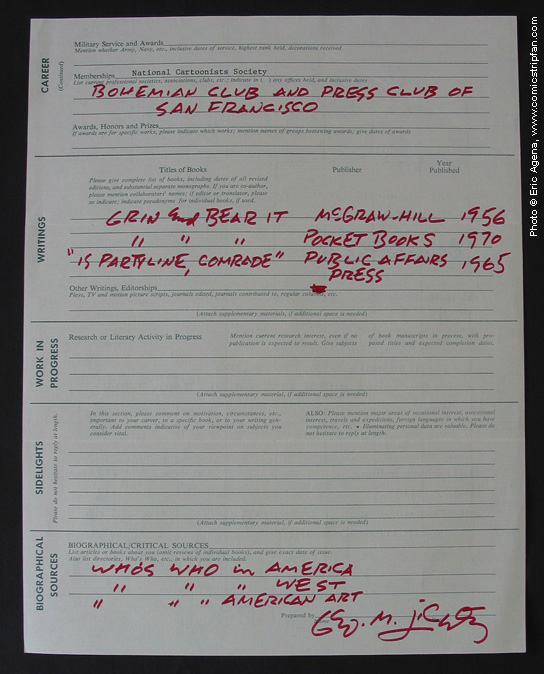 CAREER
(Continued)
Military Service and Awards
Mention whether Army, Navy, etc., inclusive dates of service, highest rank held, decorations received
Memberships National Cartoonists Society
List current professional societies, associations, clubs, etc.; indicate in ( ) any offices held, and inclusive dates
BOHEMIAN CLUB AND PRESS CLUB OF
SAN FRANCISCO
Awards, Honors and Prizes
If awards are for specific works, please indicate which works; mention names of groups bestowing awards; give dates of awards
WRITINGS
Titles of Books Publisher Year Published
Please give complete list of books, including dates of all revised
editions, and substantial separate monographs. If you are co-author,
please mention collaborators' names; if editor or translator, please
so indicate; indicate pseudonyms for individual books, if used.
GRIN and BEAR IT McGRAW-HILL 1956
" " " POCKET BOOKS 1970
"IS PARTYLINE, COMRADE" PUBLIC AFFAIRS PRESS 1965
Other Writings, Editorships
Plays, TV and motion picture scripts, journals edited, journals contributed to, regular columns, etc.
(Attach supplementary materials, if additional space is needed)
WORK IN PROGRESS
Research or Literary Activity in Progress
Mention current research interest, even if no
publication is expected to result. Give subjects
of book manuscripts in process, with pro-
posed titles and expected completion dates.
(Attach supplementary material, if additional space is needed)
SIDELIGHTS
Please do not hesitate to reply at length.
In this section, please comment on motivation, circumstances, etc.,
important to your career, to a specific book, or to your writing gen-
erally. Add comments indicative of your viewpoint on subjects you
consider vital.
ALSO: Please mention major areas of vocational interest, avocational
interest, travels and expeditions, foreign languages in which you have
competence, etc. • Illuminating personal data are valuable. Please do
not hesitate to reply at length.
(Attach supplementary material, if additional space is needed)
BIOGRAPHICAL SOURCES
BIOGRAPHICAL/CRITICAL SOURCES
List articles or books about you (omit reviews of individual books), and give exact date of issue.
Also list directories, Who's Who, etc., in which you are included.
WHO'S WHO in AMERICA
" " " WEST
" " " AMERICAN ART
Prepared by
Geo. M. Lichty
Photo © Eric Agena, www.comicstripfan.com